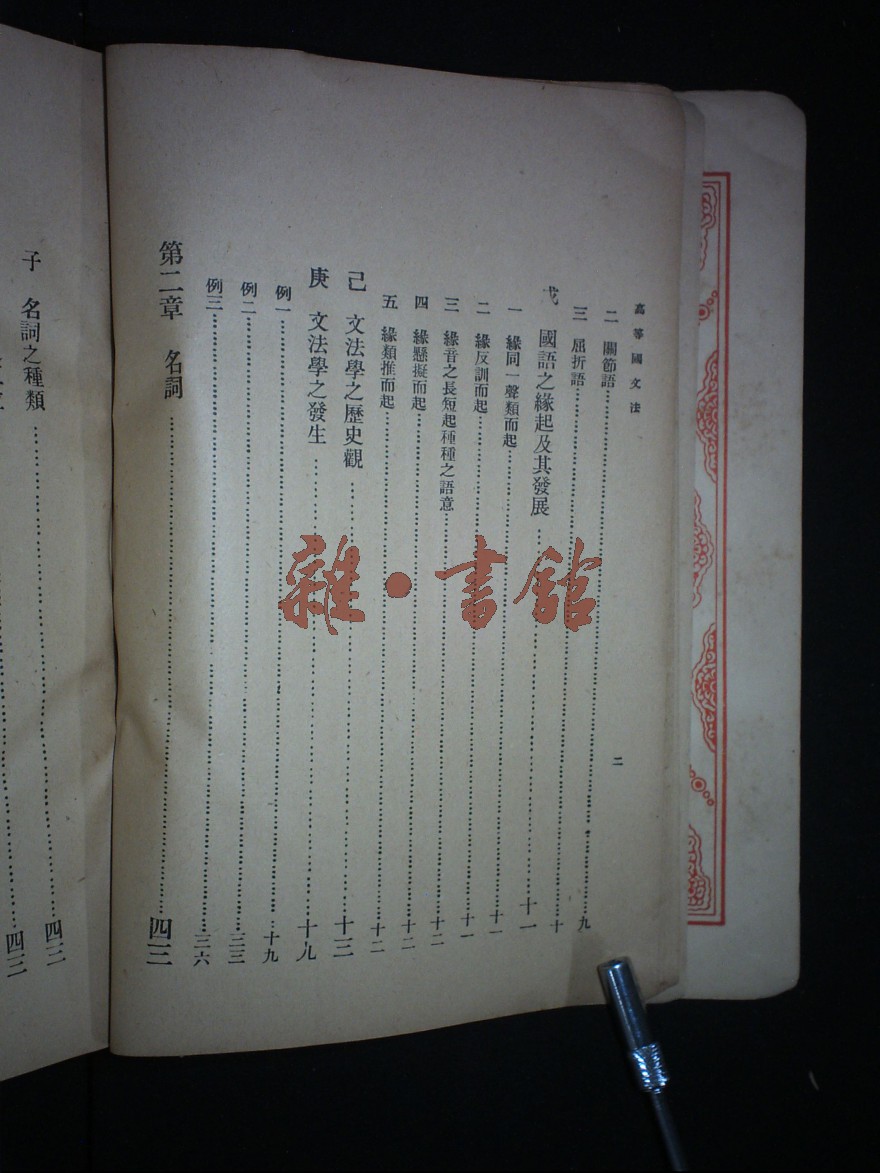 高等國文法
二 關節語……九
三 屈折語……十
戊 國語之緣起及其發展……十一
一 緣同一聲類而起……十一
二 緣反訓而起……十一
三 緣音之長短起種種之語意……十二
四 緣懸擬而起……十二
五 緣類推而起……十二
己 文法學之歷史觀……十三
庚 文法學之發生……十九
例一……十九
例二……三三
例三……三六
第二章 名詞……四三
二
子 名詞之種類……四三
四三
雜·書館